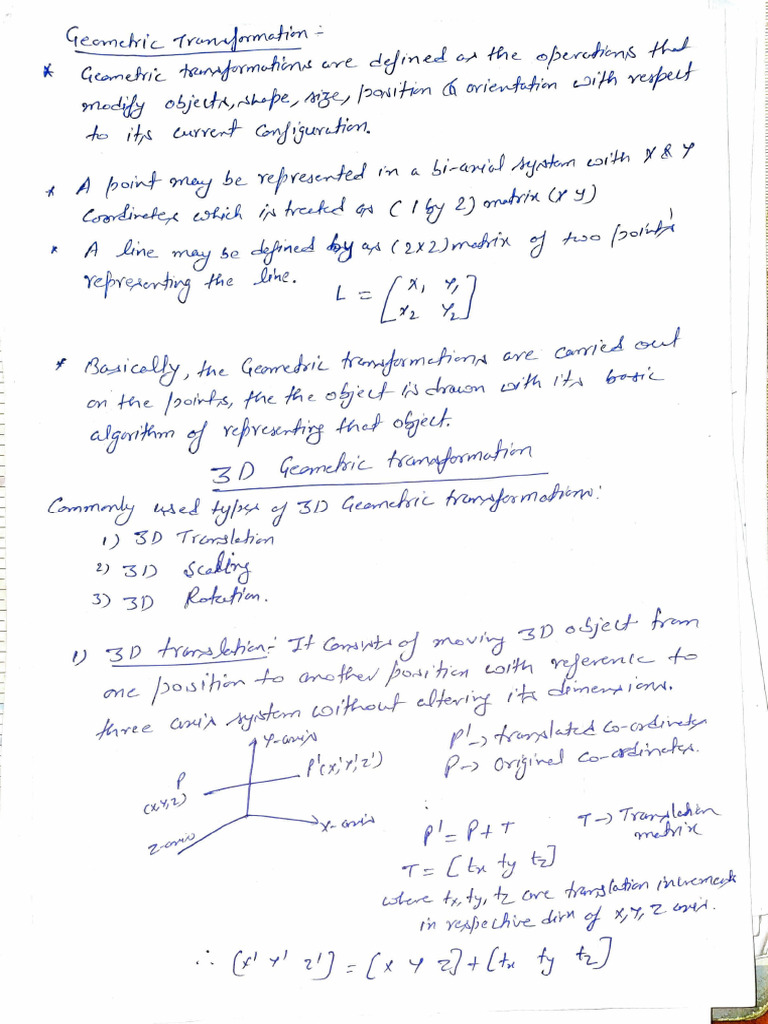 Geometric Transformation :-
* Geometric transformations are defined as the operations that
modify objects, shape, size, position & orientation with respect
to its current configuration.
* A point may be represented in a bi-axial system with X & Y
Coordinates which is treated as (1 by 2) matrix (x y)
* A line may be defined by as (2x2) matrix of two points'
representing the line.
L = [x1 y1
x2 y2]
* Basically, the Geometric transformations are carried out
on the points, the the object is drawn with its basic
algorithm of representing that object.
3D Geometric transformation
Commonly used types of 3D Geometric transformations:
1) 3D Translation
2) 3D Scaling
3) 3D Rotation.
1) 3D translation:- It consists of moving 3D object from
one position to another position with reference to
three axis system without altering its dimensions.
Y-axis
P'(x', y', z')
P
(x, y, z)
X-axis
Z-axis
P' → translated co-ordinates
P → Original co-ordinates.
P' = P + T
T → Translation
matrix
T = [tx ty tz]
where tx, ty, tz are translation increments
in respective dirn of X, Y, Z axis.
∴ [x' y' z'] = [x y z] + [tx ty tz]